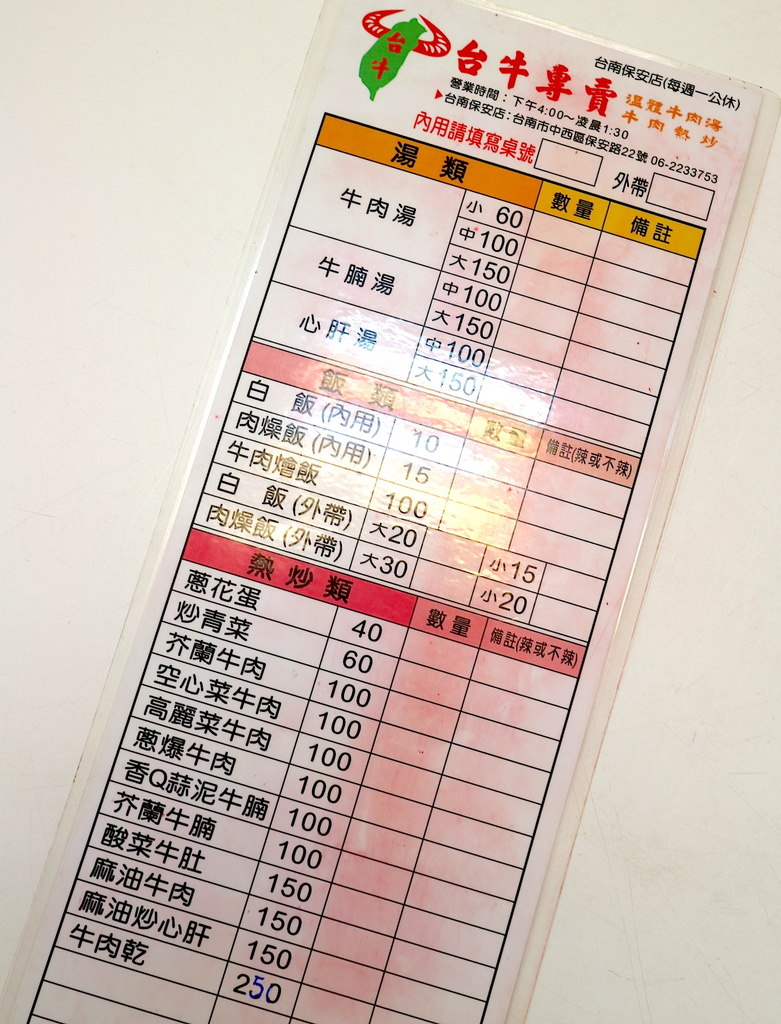 台牛
台牛專賣
台南保安店(每週一公休)
溫體牛肉湯
牛肉熱炒
營業時間：下午4:00～凌晨1:30
▶台南保安店：台南市中西區保安路22號 06-2233753
內用請填寫桌號 外帶
湯類 數量 備註
牛肉湯 小 60
中100
大150
牛腩湯 中100
大150
心肝湯 中100
大150
飯類 數量 備註(辣或不辣)
白 飯(內用) 10
肉燥飯(內用) 15
牛肉燴飯 100
白 飯(外帶) 大20 小15
肉燥飯(外帶) 大30 小20
熱炒類 數量 備註(辣或不辣)
蔥花蛋 40
炒青菜 60
芥蘭牛肉 100
空心菜牛肉 100
高麗菜牛肉 100
蔥爆牛肉 100
香Q蒜泥牛腩 100
芥蘭牛腩 100
酸菜牛肚 150
麻油牛肉 150
麻油炒心肝 150
牛肉乾 250